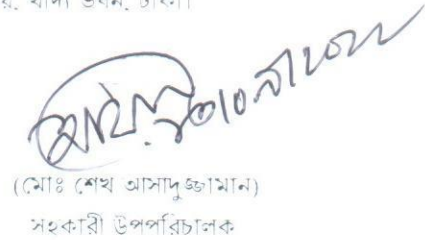 র, খাদ্য ভবন, ঢাকা।
(মোঃ শেখ আসাদুজ্জামান)
সহকারী উপপরিচালক